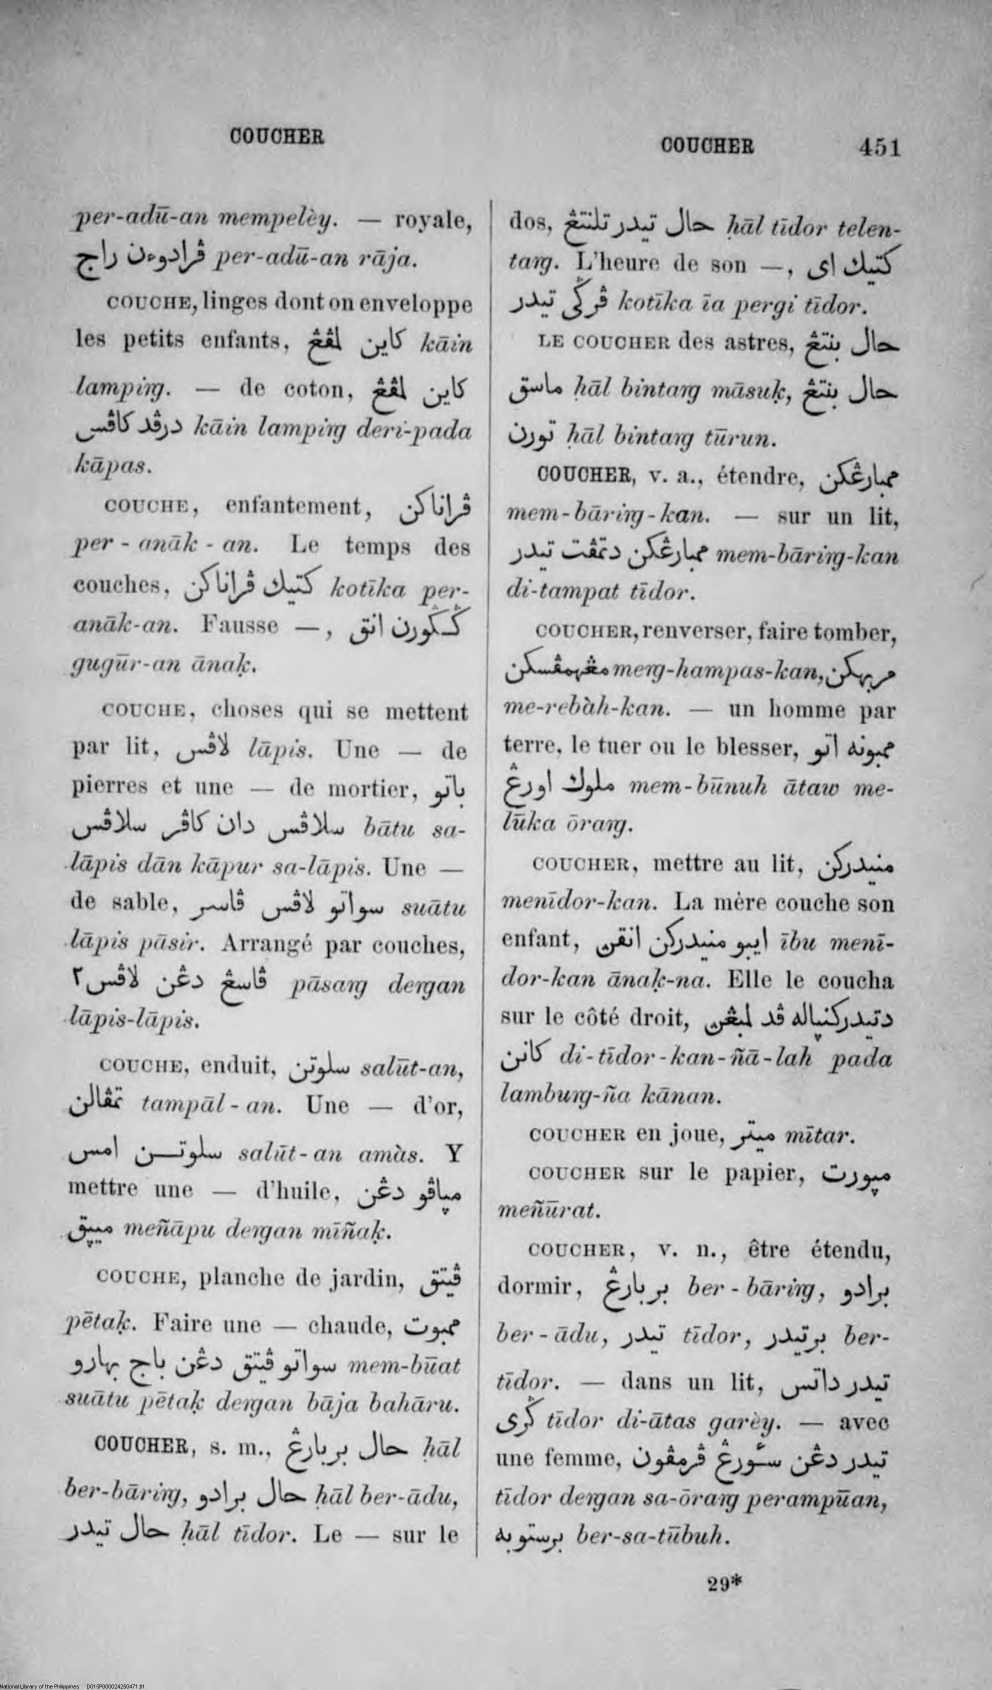 COUCHER
COUCHER 451
per-adū-an mempelèy. — royale,
ڤرادوءن راج per-adū-an rāja.
COUCHE, linges dont on enveloppe
les petits enfants, كاين لمڤڠ kāin
lampiŋg. — de coton, كاين لمڤڠ
درڤد كاڤس kāin lampiŋg deri-pada
kāpas.
COUCHE, enfantement, ڤراناكن
per-anāk-an. Le temps des
couches, كتيك ڤراناكن kotīka per-
anāk-an. Fausse —, ݢݢورن انق
gugūr-an ānaḳ.
COUCHE, choses qui se mettent
par lit, لاڤس lāpis. Une — de
pierres et une — de mortier, باتو
سلاڤس دان كاڤر سلاڤس bātu sa-
lāpis dān kāpur sa-lāpis. Une —
de sable, سواتو لاڤس ڤاسر suātu
lāpis pāsir. Arrangé par couches,
ڤاسڠ دڠن لاڤس٢ pāsaŋg deŋgan
lāpis-lāpis.
COUCHE, enduit, سلوتن salūt-an,
تمڤالن tampāl-an. Une — d'or,
سلوتن امس salūt-an amàs. Y
mettre une — d'huile, مڽاڤو دڠن
ميڽق meñāpu deŋgan mīñaḳ.
COUCHE, planche de jardin, ڤيتق
pētaḳ. Faire une — chaude, ممبوت
سواتو ڤيتق دڠن باج بهارو mem-būat
suātu pētaḳ deŋgan bāja bahāru.
COUCHER, s. m., حال بربارڠ ḥāl
ber-bāriŋg, حال برادو ḥāl ber-ādu,
حال تيدر ḥāl tīdor. Le — sur le
dos, حال تيدر تلنتڠ ḥāl tīdor telen-
taŋg. L'heure de son —, كتيك اى
ڤرݢى تيدر kotīka īa pergi tīdor.
LE COUCHER des astres, حال بنتڠ
ماسق ḥāl bintaŋg māsuḳ, حال بنتڠ
تورن ḥāl bintaŋg tūrun.
COUCHER, v. a., étendre, ممبارڠكن
mem-bāriŋg-kan. — sur un lit,
ممبارڠكن دتمڤت تيدر mem-bāriŋg-kan
di-tampat tīdor.
COUCHER, renverser, faire tomber,
مڠهمڤسكن meŋg-hampas-kan, مربهكن
me-rebàh-kan. — un homme par
terre, le tuer ou le blesser, ممبونه اتو
ملوك اورڠ mem-būnuh ātaw me-
lūka ōraŋg.
COUCHER, mettre au lit, منيدركن
menīdor-kan. La mère couche son
enfant, ايبو منيدركن انقڽ ību menī-
dor-kan ānaḳ-ña. Elle le coucha
sur le côté droit, دتيدركنڽاله ڤد لمبڠڽ
كانن di-tīdor-kan-ñā-lah pada
lambuŋg-ña kānan.
COUCHER en joue, ميتر mītar.
COUCHER sur le papier, مڽورت
meñūrat.
COUCHER, v. n., être étendu,
dormir, بربارڠ ber-bāriŋg, برادو
ber-ādu, تيدر tīdor, برتيدر ber-
tīdor. — dans un lit, تيدر داتس
ݢرى tīdor di-ātas garèy. — avec
une femme, تيدر دڠن سأورڠ ڤرمڤون
tīdor deŋgan sa-ōraŋg perampūan,
برستوبه ber-sa-tūbuh.
29*
National Library of the Philippines